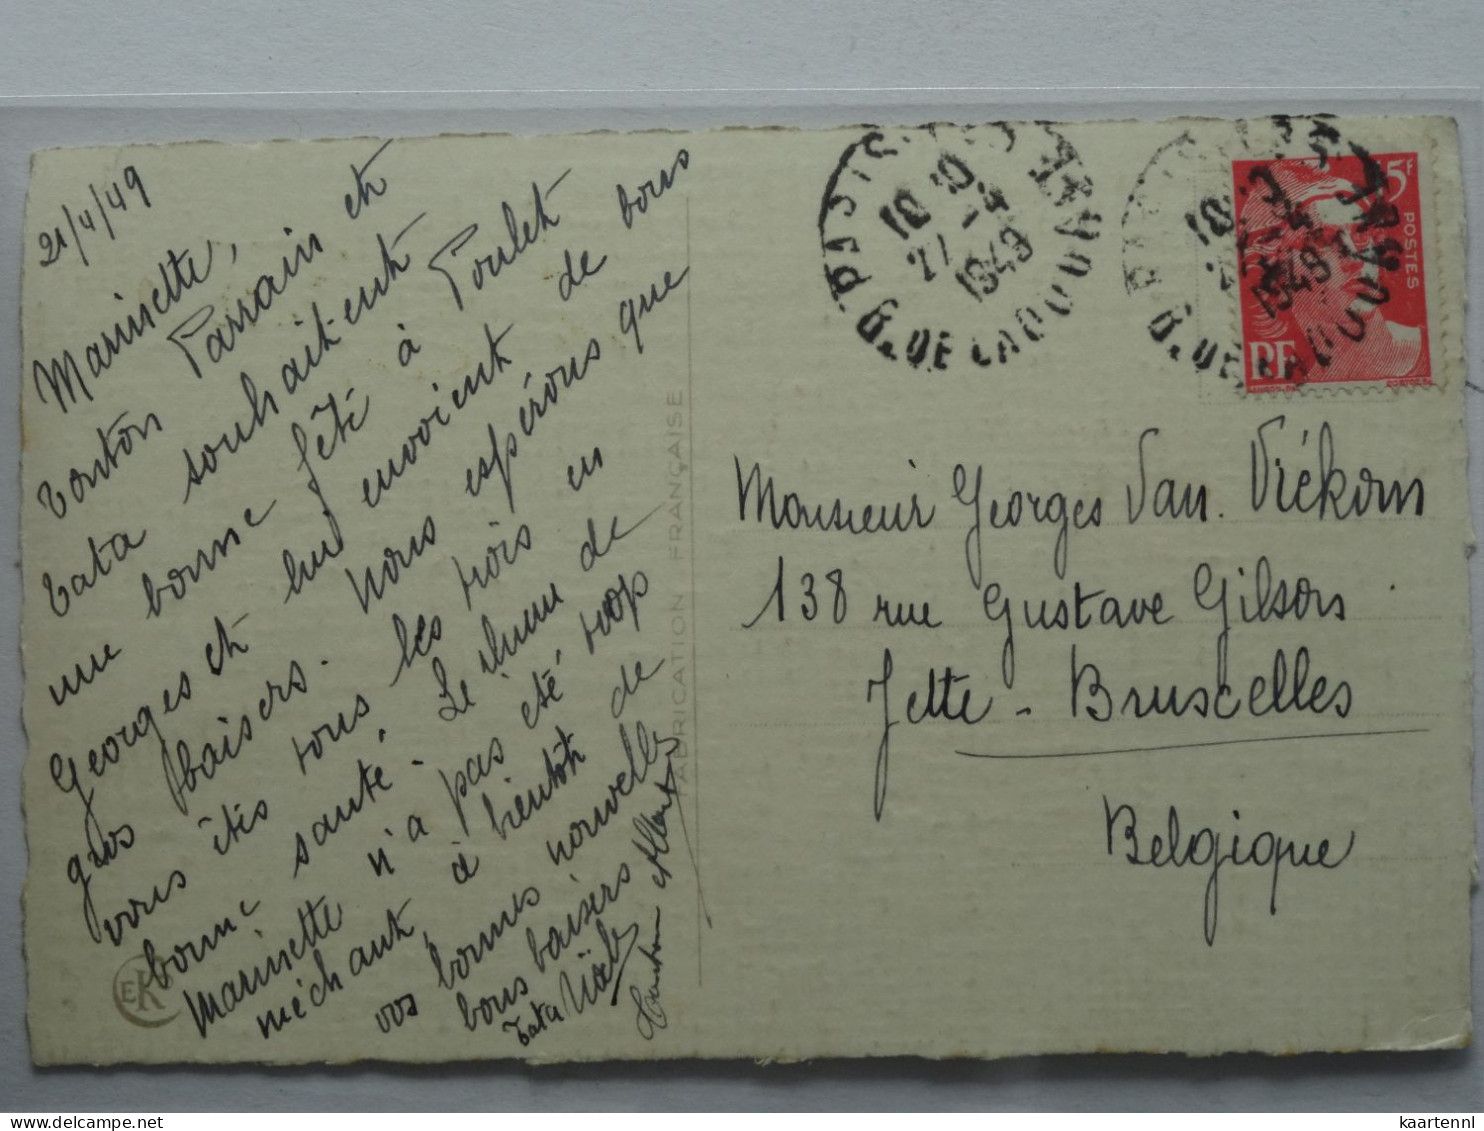 21/4/49
Marinette,
tonton Parrain et
tata souhaitent Poulet
une bonne fête à
Georges et lui envoient de bons
gros baisers. Nous espérons que
vous êtes tous les trois en
bonne santé. Le rhume de
Marinette n'a pas été trop
méchant, à bientôt de
vos bonnes nouvelles
bons baisers
Tata
tonton Albert
FABRICATION FRANÇAISE
EK
PARIS
10 10
27 - 4
1949
R. DE LA DOUANE
PARIS
10
1949
5F
POSTES
RF
Monsieur Georges Van Viékom
138 rue Gustave Gilson
Jette - Bruxelles
Belgique
kaartennl